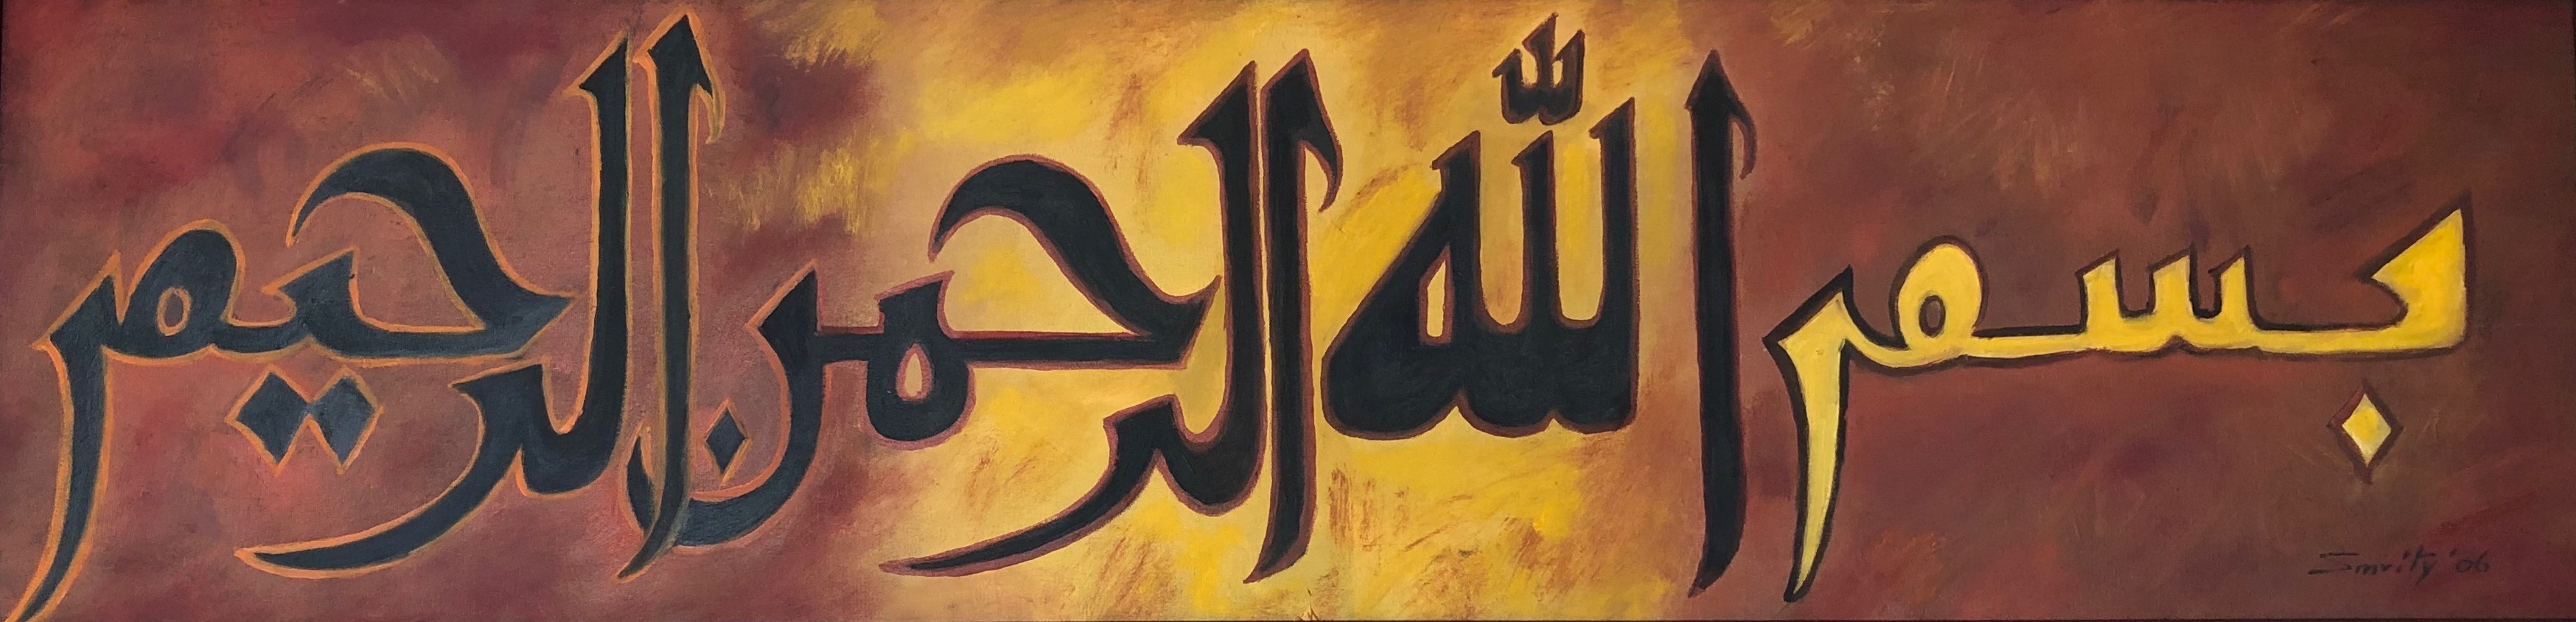 بسم الله الرحمن الرحيم
Smrity '06